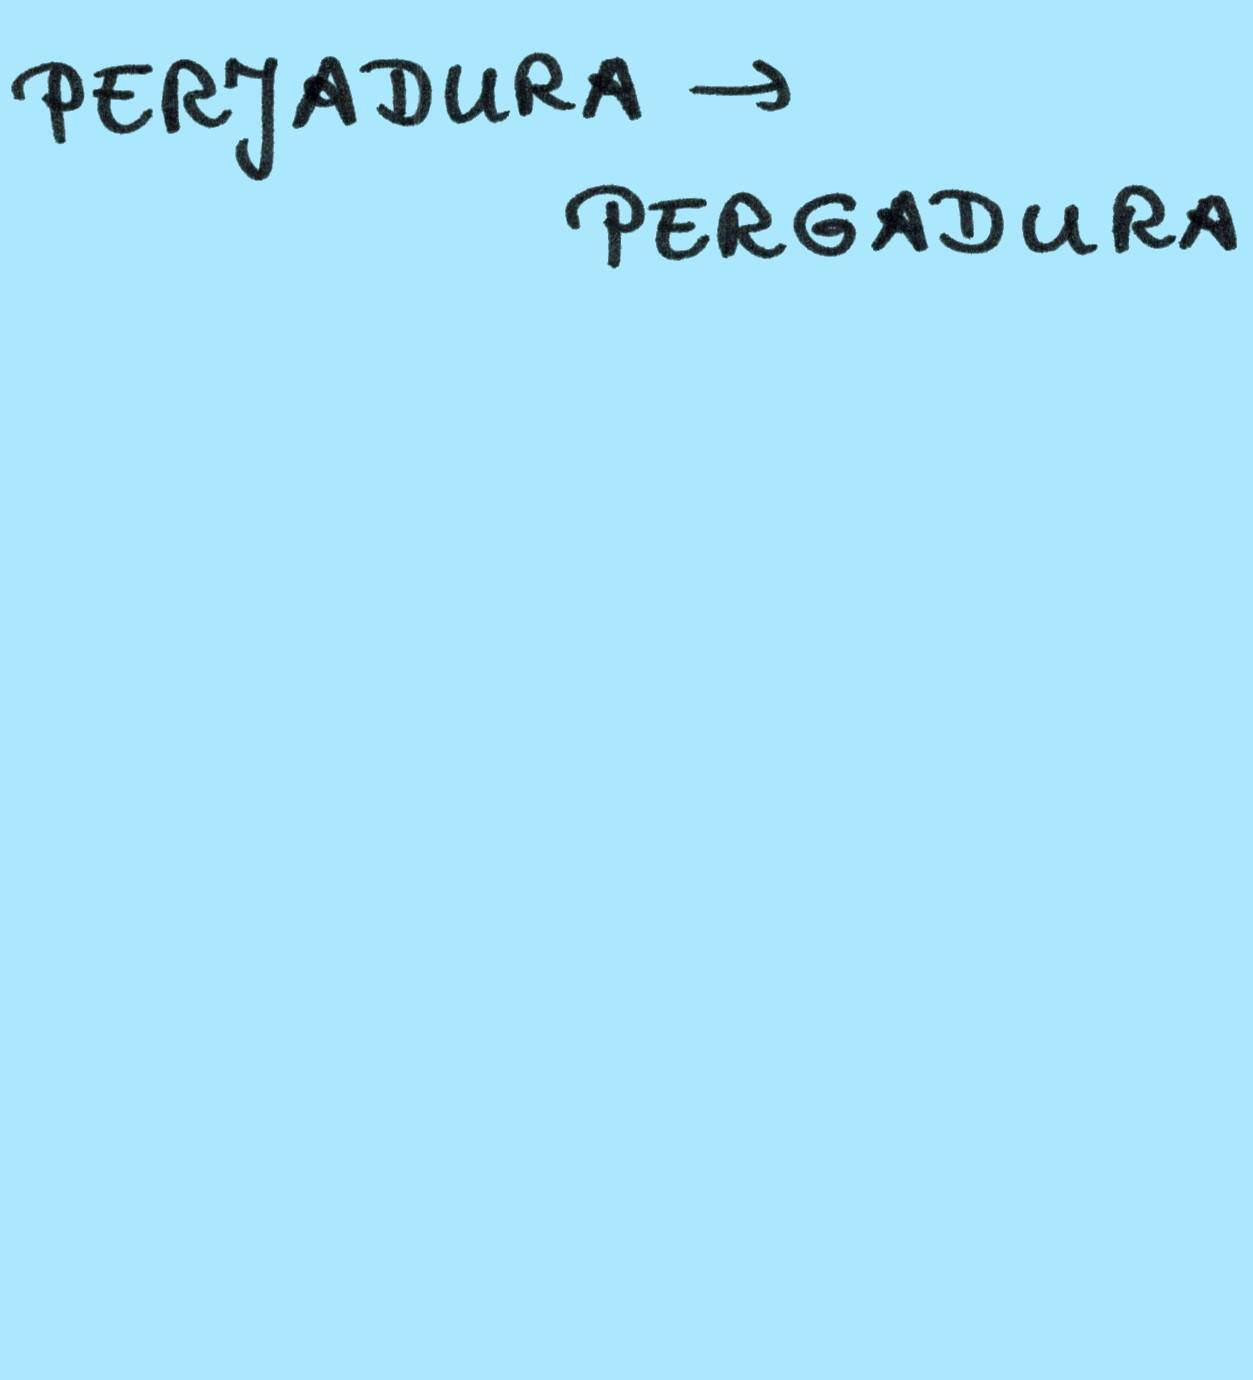 PERJADURA →
PERGADURA